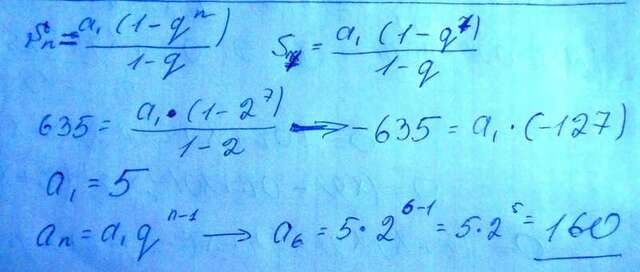 Sn = a₁(1-qⁿ)/1-q S₇ = a₁(1-q⁷)/1-q
635 = a₁·(1-2⁷)/1-2 → -635 = a₁·(-127)
a₁ = 5
aₙ = a₁qⁿ⁻¹ → a₆ = 5·2⁶⁻¹ = 5·2⁵ = 160